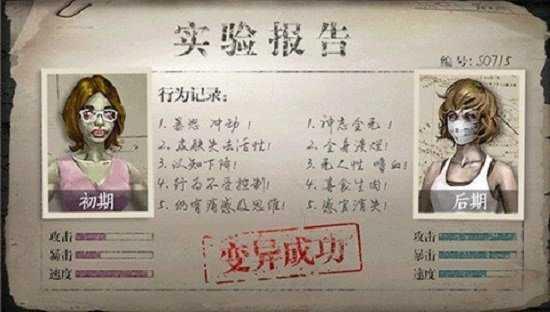 实验报告
编号:S0715
行为记录:
1.暴怒 冲动!
2.皮肤失去活性!
3.认知下降!
4.行为不受控制!
5.仍有痛感及思维!
1.神志全无!
2.全身溃烂!
3.无人性 嗜血!
4.喜食生肉!
5.感官消失!
初期
后期
变异成功
攻击
暴击
速度
攻击
暴击
速度